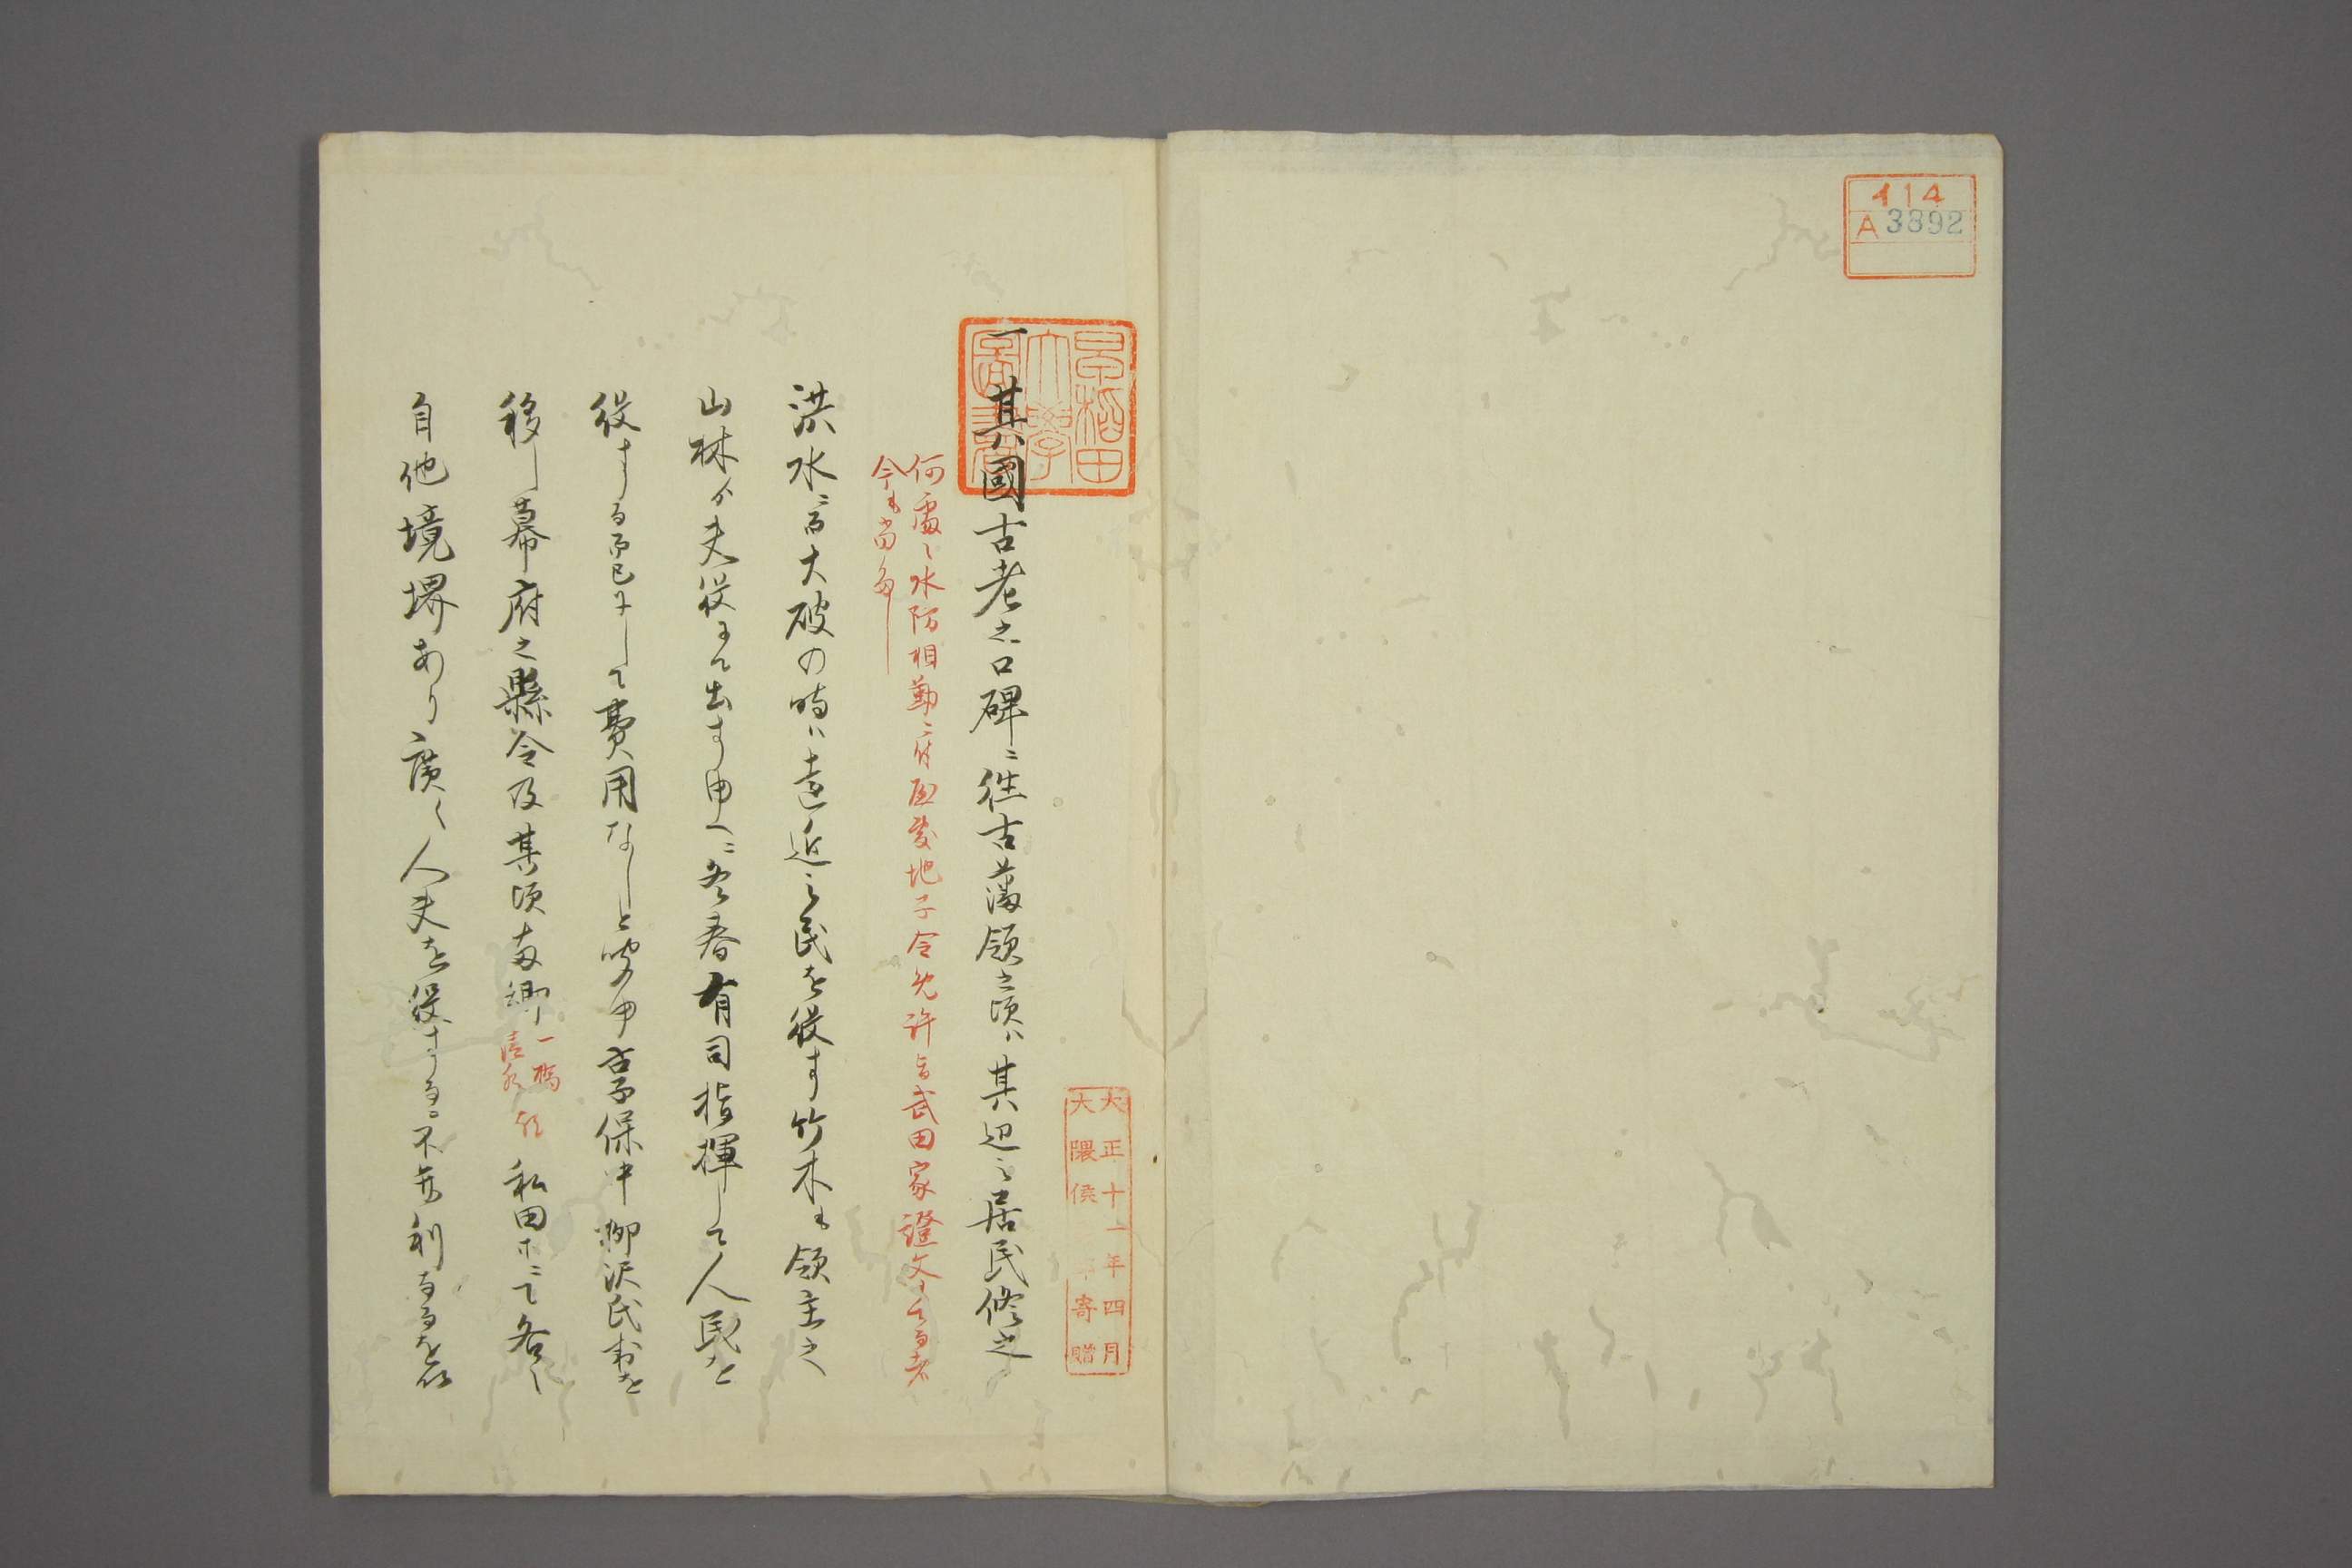 114
A 3892
早稲田
大學
圖書
大正十一年四月
大隈侯 寄贈
一其國古老之口碑ニ往古藩領之頃ハ其辺之居民修之
何處之水防相勤ニ付 地子令免許 武田家證文 者
今も尚
洪水ニ而大破の時ハ遠近之民を役す竹木も領主之
山林か夫役もて出す由 春有司指揮して人民を
役するのミにして費用なしと 享保中柳沢氏封を
移し幕府之縣令及其頃両卿
一橋
清水
領
私田ホニて各〻
自他境堺あり廣く人夫を役する 不 利なるを以